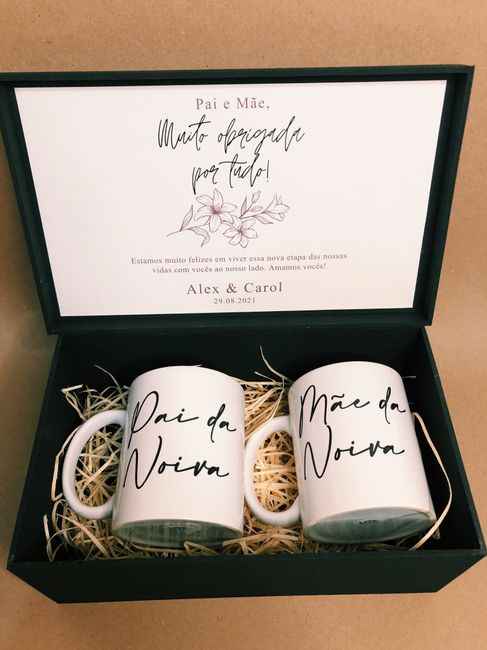 Pai e Mãe,
Muito obrigada
por tudo!
Estamos muito felizes em viver essa nova etapa das nossas
vidas com vocês ao nosso lado. Amamos vocês!
Alex & Carol
29.08.2021
Pai da
Noiva
Mãe da
Noiva